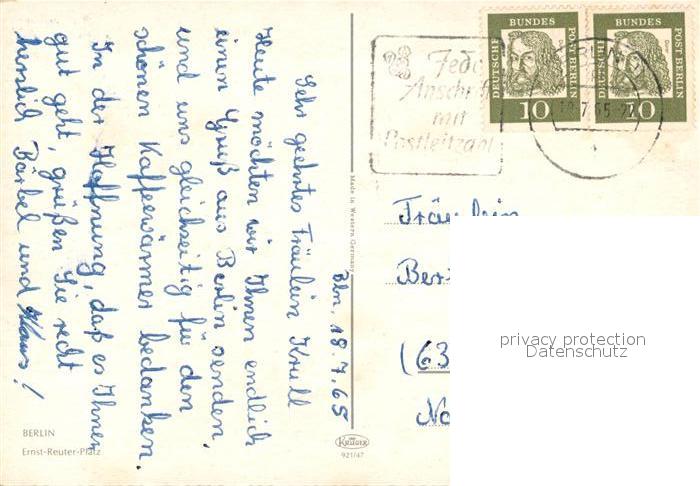 Bln, 18.7.65
Sehr geehrtes Fräulein Krull
Heute möchten wir Ihnen endlich
einen Gruß aus Berlin senden,
und uns gleichzeitig für den
schönen Kaffeewärmer bedanken.
In der Hoffnung, daß es Ihnen
gut geht, grüßen Sie recht
herzlich Bärbel und Klaus!
BERLIN
Ernst-Reuter-Platz
Made in Western Germany
KRÜGER
921/47
Jede
Anschrift
mit
Postleitzahl
DEUTSCHE BUNDES POST BERLIN
10
DEUTSCHE BUNDES POST BERLIN
10
BERLIN
18.7.65-2
Fräulein
Ber
(63
No
privacy protection
Datenschutz